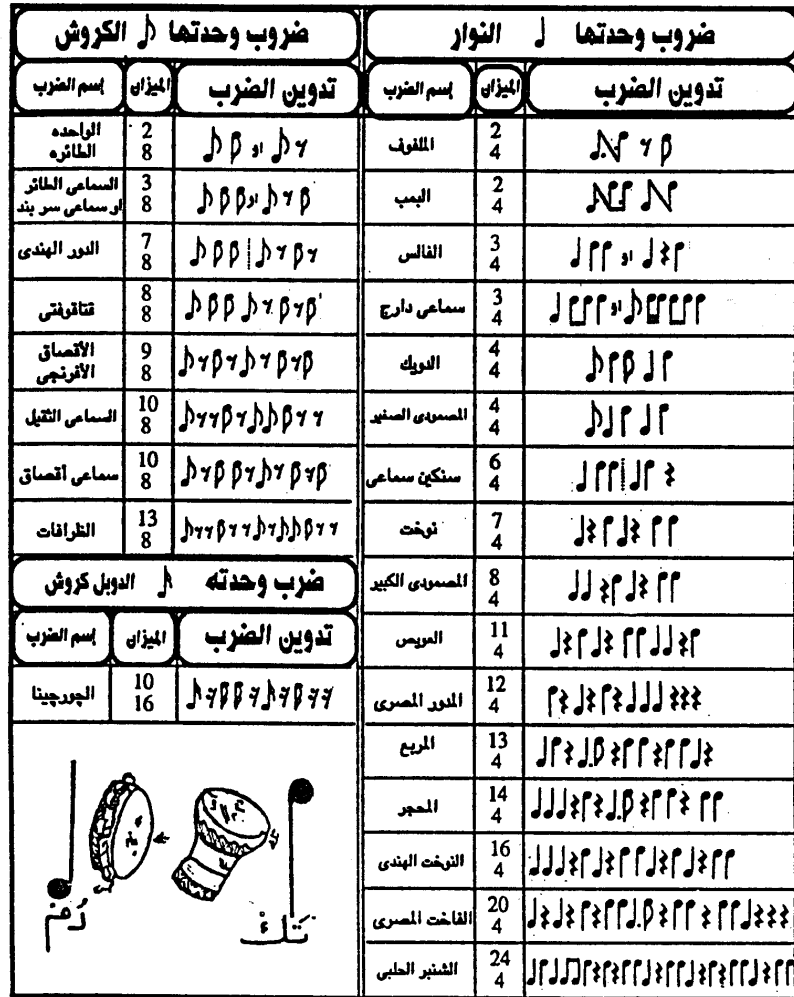 ضروب وحدتها ♩ النوار
تدوين الضرب الميزان إسم الضرب
2/4 الملفوف
2/4 البمب
او 3/4 الفالس
او 3/4 سماعى دارج
4/4 الدويك
4/4 المصمودى الصغير
6/4 سنكين سماعى
7/4 نوخت
8/4 المصمودى الكبير
11/4 العويص
12/4 المدور المصرى
13/4 المربع
14/4 المحجر
16/4 النوخت الهندى
20/4 الفاخت المصرى
24/4 الشنبر الحلبى
ضروب وحدتها ♪ الكروش
تدوين الضرب الميزان إسم الضرب
او 2/8 الواحده
الطائره
او 3/8 السماعى الطائر
او سماعى سر بند
7/8 الدور الهندى
8/8 قتاقوفتى
9/8 الأقصاق
الأفرنجى
10/8 السماعى الثقيل
10/8 سماعى أقصاق
13/8 الظرافات
ضرب وحدته الدوبل كروش
تدوين الضرب الميزان إسم الضرب
10/16 الچورچينا
تك
تَكْ
دُمْ